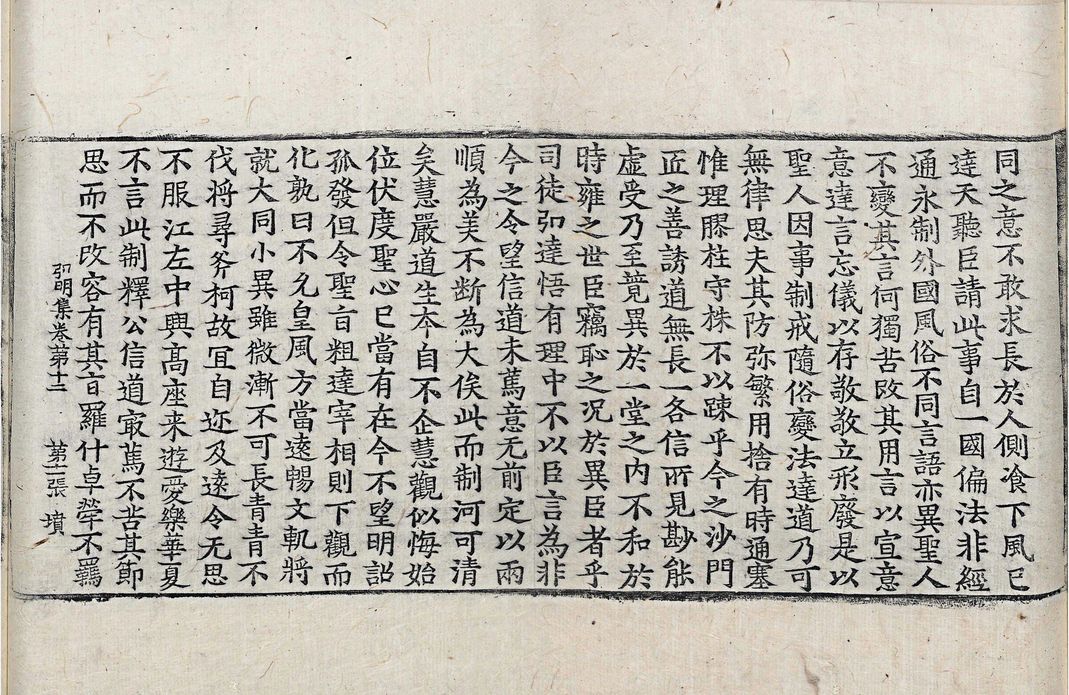 同之意不敢求長於人側飡下風已
達天聽臣請此事自一國偏法非經
通永制外國風俗不同言語亦異聖人
不變其言何獨苦改其用言以宣意
意達言忘儀以存敬敬立形廢是以
聖人因事制戒隨俗變法達道乃可
無律思夫其防弥繁用捨有時通塞
惟理膠柱守株不以踈乎今之沙門
匠之善誘道無長一各信所見尠能
虛受乃至競異於一堂之内不和於
時雍之世臣竊恥之况於異臣者乎
司徒弘達悟有理中不以臣言為非
今之令望信道未篤意无前定以兩
順為美不断為大俟此而制河可清
矣慧嚴道生夲自不企慧觀似悔始
位伏度聖心已當有在今不望明詔
孤發但令聖旨粗達宰相則下觀而
化孰曰不允皇風方當遠暢文軌將
就大同小異雖微漸不可長青青不
伐將尋斧柯故冝自迩及遠令无思
不服江左中興髙座来遊愛樂華夏
不言此制釋公信道㝡篤不苦其節
思而不改容有其旨羅什卓犖不羈
弘明集巻第十二 第十一張 墳